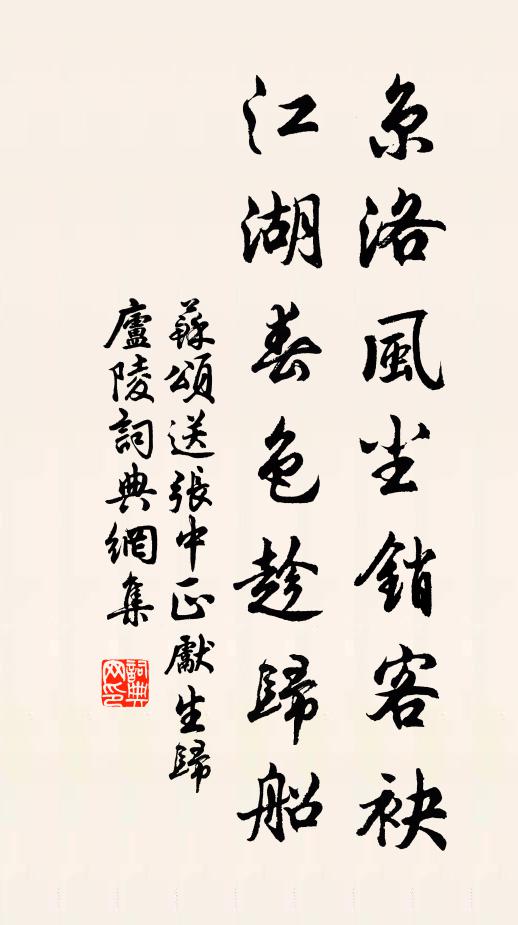 京洛風尘銷客袂
江湖春色趁歸船
蘇頌送張中正獻生歸
廬陵詞典網集
詞典网印